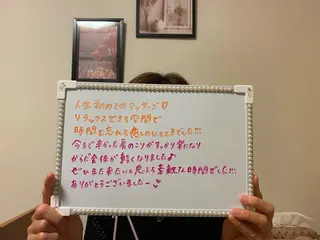 人生初めてのマッサージ♡
リラックスできる空間で
時間を忘れる癒しのひとときでした!!!
今まで辛かった肩のこりがすっかり楽になり
からだ全体が軽くなりました♪
ぜひまた来たいと思える素敵な時間でした!!!
ありがとうございましたー♥